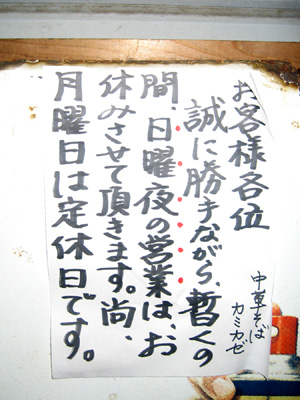 お客様各位
誠に勝手ながら、暫くの
間、日曜夜の営業は、お
休みさせて頂きます。尚、
月曜日は定休日です。
中華そば
カミカゼ